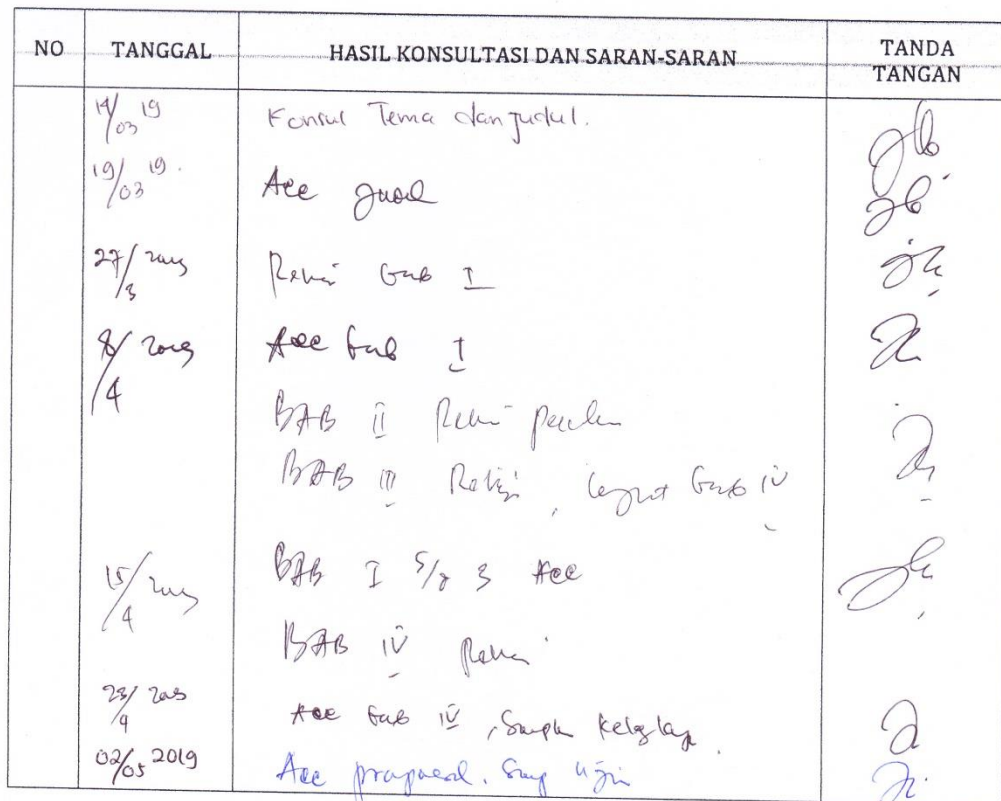 NO TANGGAL HASIL KONSULTASI DAN SARAN-SARAN TANDA TANGAN
14/03 19 Konsul Tema dan Judul.
19/03 19. Acc Judul
27/3 2019 Revisi Bab I
8/4 2019 Acc Bab I
BAB II Revisi
BAB III Revisi, lanjut Bab IV
15/4 2019 BAB I s/d 3 Acc
BAB IV Revisi
23/4 2019 Acc Bab IV,
02/05 2019 Acc proposal. Siap Ujin